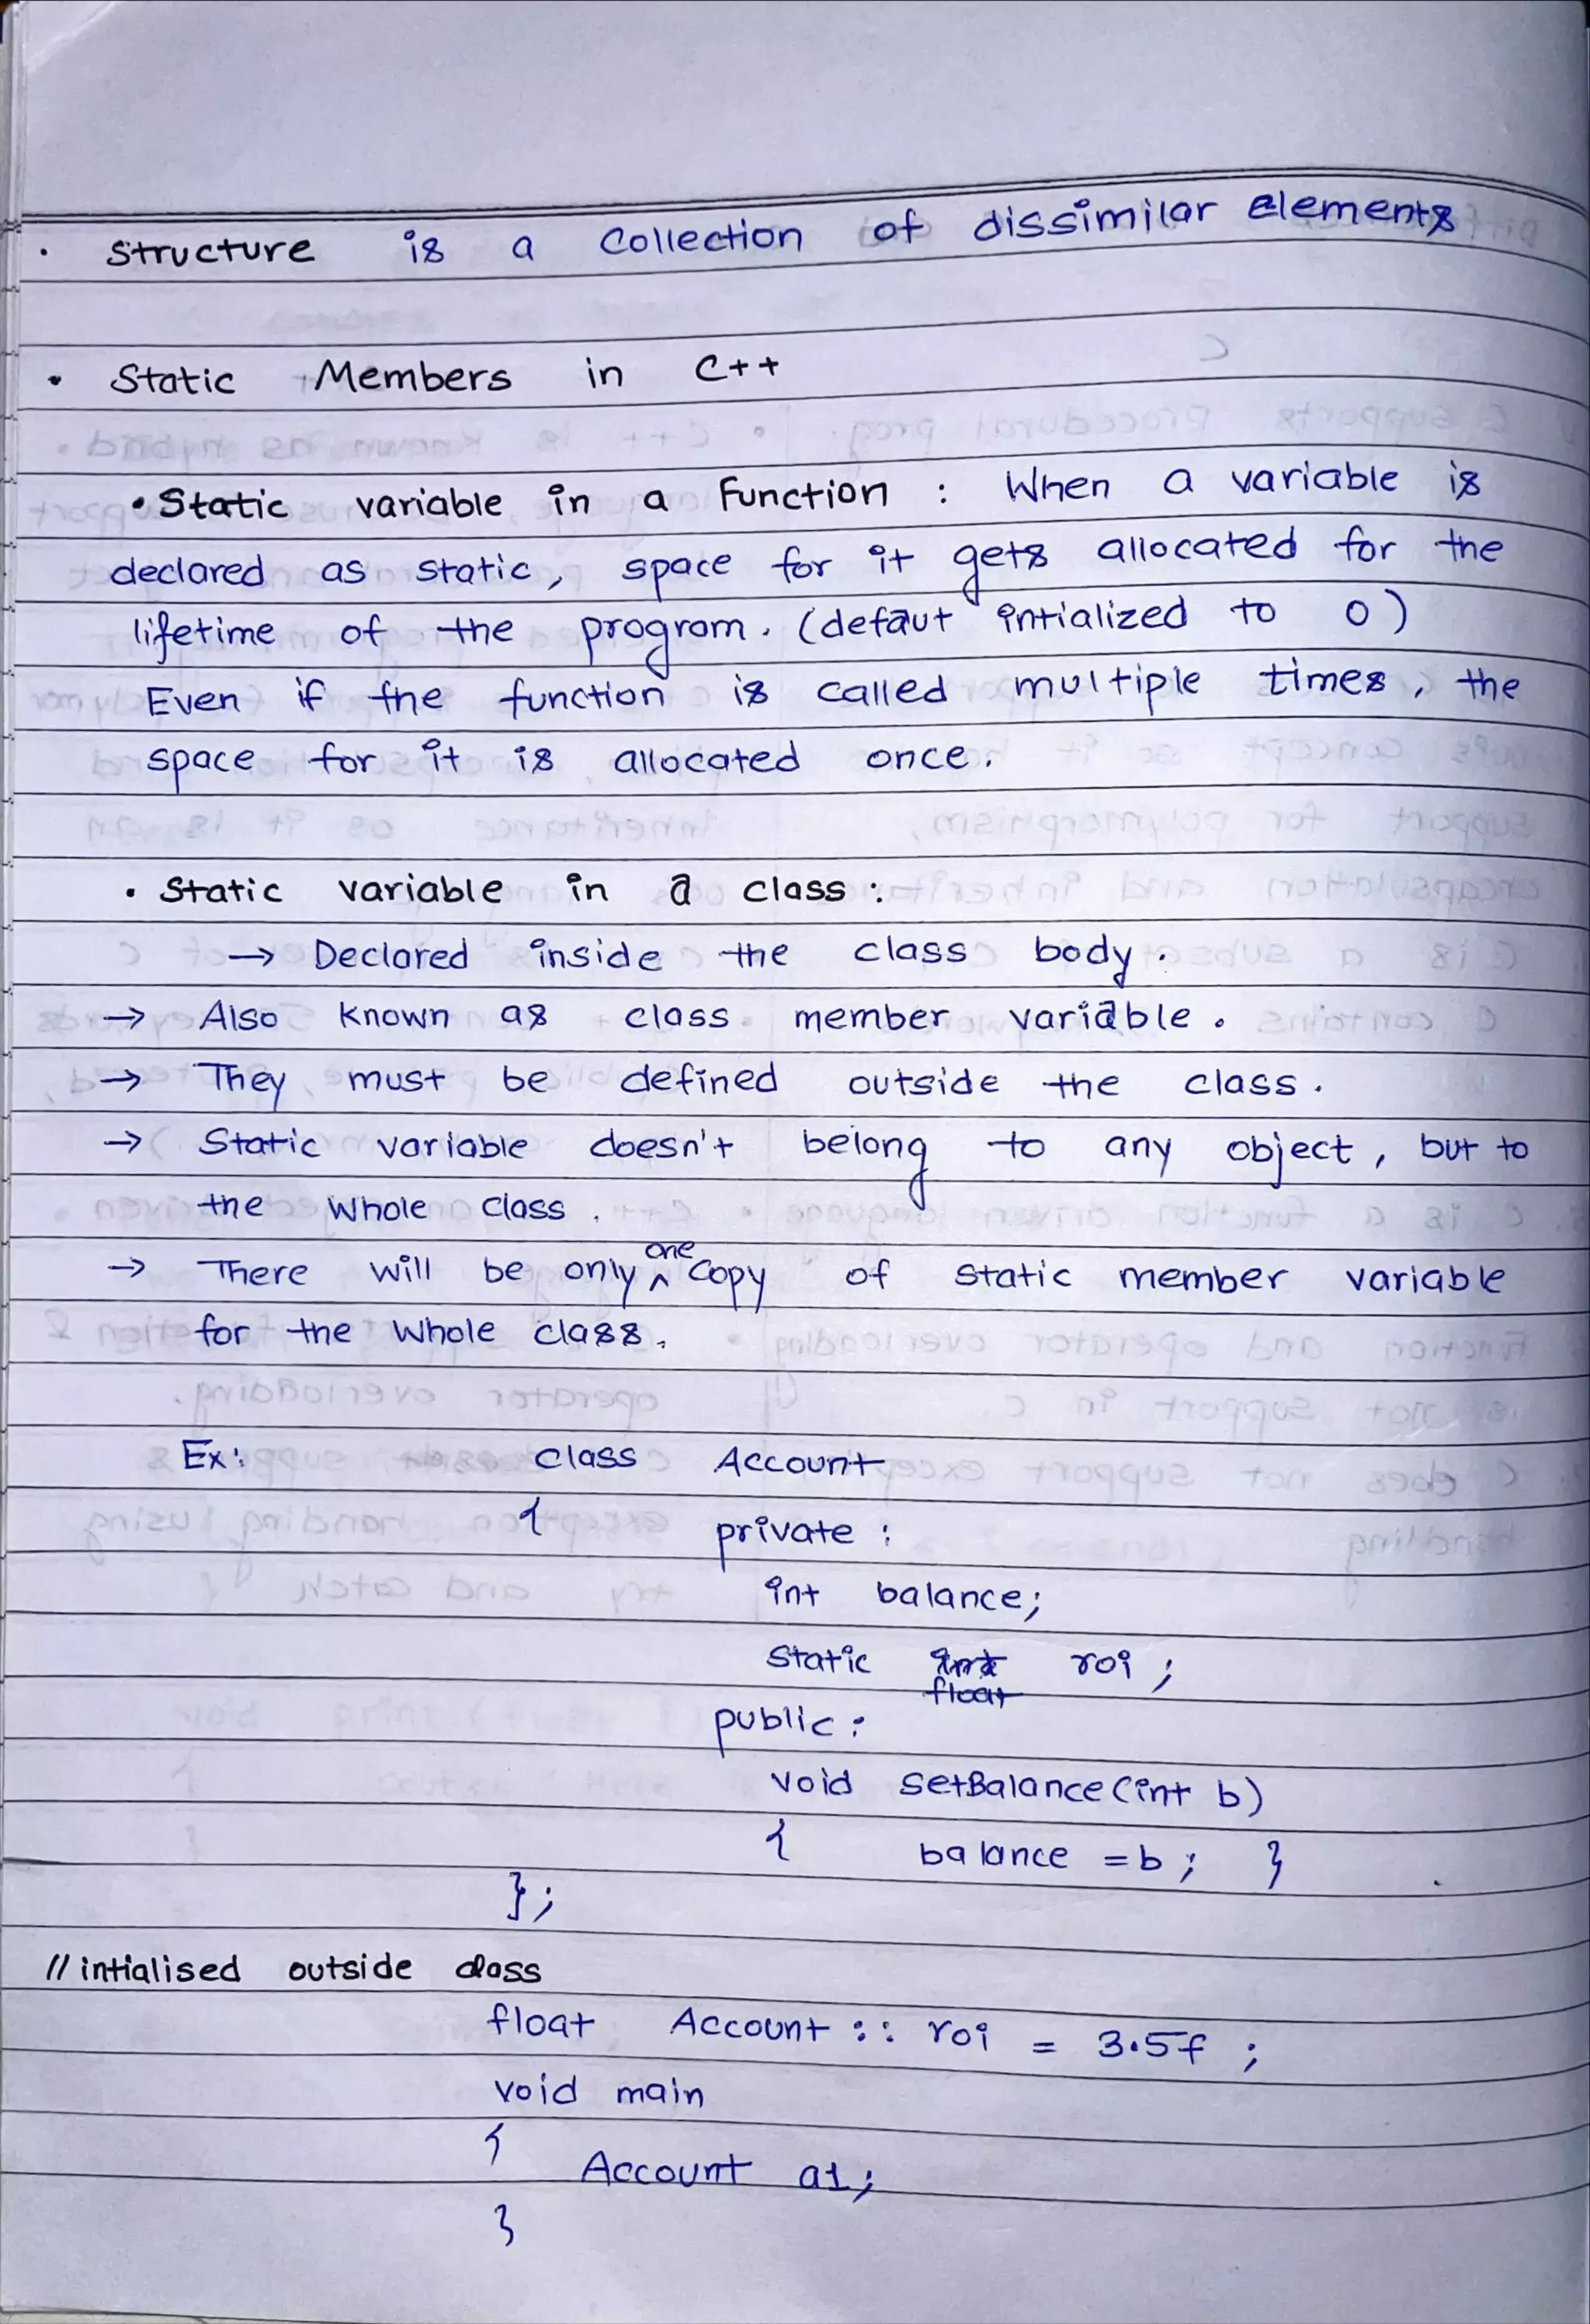 • Structure is a collection of dissimilar elements
• Static Members in C++
• Static variable in a Function : When a variable is
declared as static, space for it gets allocated for the
lifetime of the program. (defaut intialized to 0)
Even if the function is called multiple times, the
space for it is allocated once.
• Static variable in a class :
→ Declared inside the class body.
→ Also known as class member variable.
→ They must be defined outside the class.
→ Static variable doesn't belong to any object, but to
the whole class.
→ There will be only one copy of static member variable
for the whole class.
Ex: class Account
{ private :
int balance;
static int roi ;
float
public :
void setBalance(int b)
{ balance = b ; }
};
// intialised outside class
float Account :: roi = 3.5f ;
void main
{
Account a1;
}